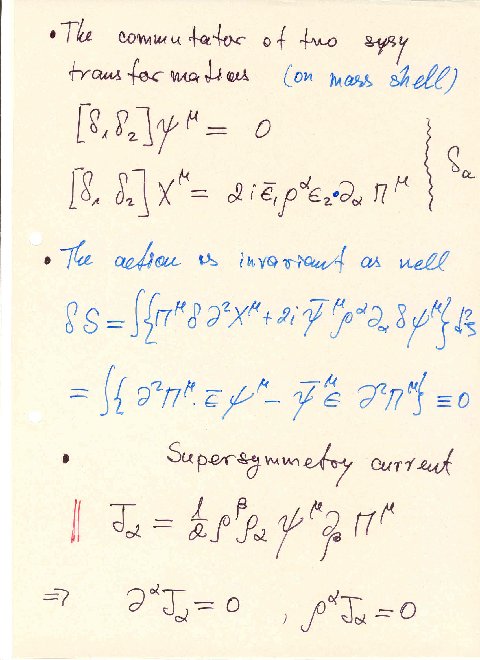 • The commutator of two sysy
transformations (on mass shell)
[δ₁ δ₂] ψ^μ = 0
[δ₁ δ₂] X^μ = 2i ε̄₁ ρ^α ε₂ · ∂_α Π^μ } δ_a
• The action is invariant as well
δS = ∫{Π^μ δ ∂² X^μ + 2i ψ̄^μ ρ^α ∂_α δ ψ^μ} d²ξ
= ∫{ ∂² Π^μ · ε̄ ψ^μ − ψ̄^μ ε ∂² Π^μ } ≡ 0
• Supersymmetry current
|| J_α = 1/2 ρ^β ρ_α ψ^μ ∂_β Π^μ
⇒ ∂^α J_α = 0 , ρ^α J_α = 0